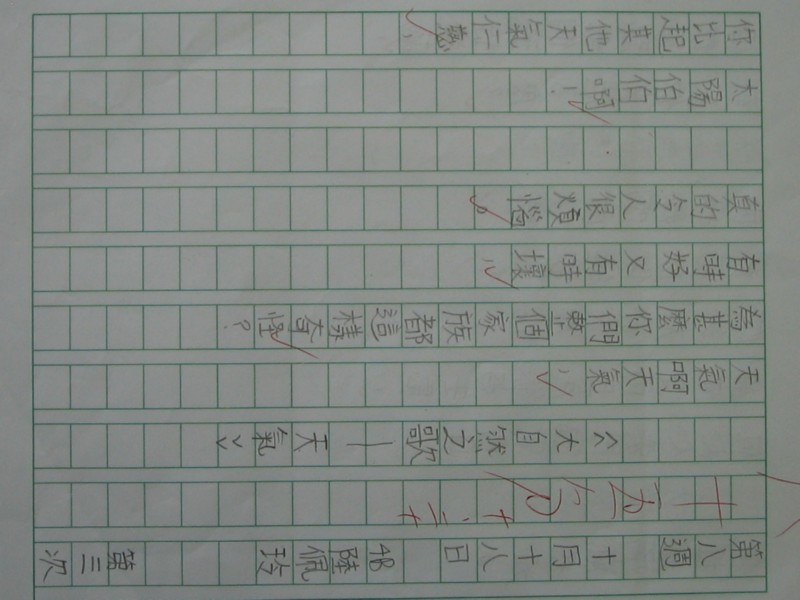 第八週 十月十八日 4B陸佩玲 第三次
十五分
《大自然之歌—天氣》
天氣啊天氣,
為甚麼你們整個家族都這樣奇怪?
有時好又有時壞,
真的令人很煩惱。
太陽伯伯啊!
你比起其他天氣仁慈,